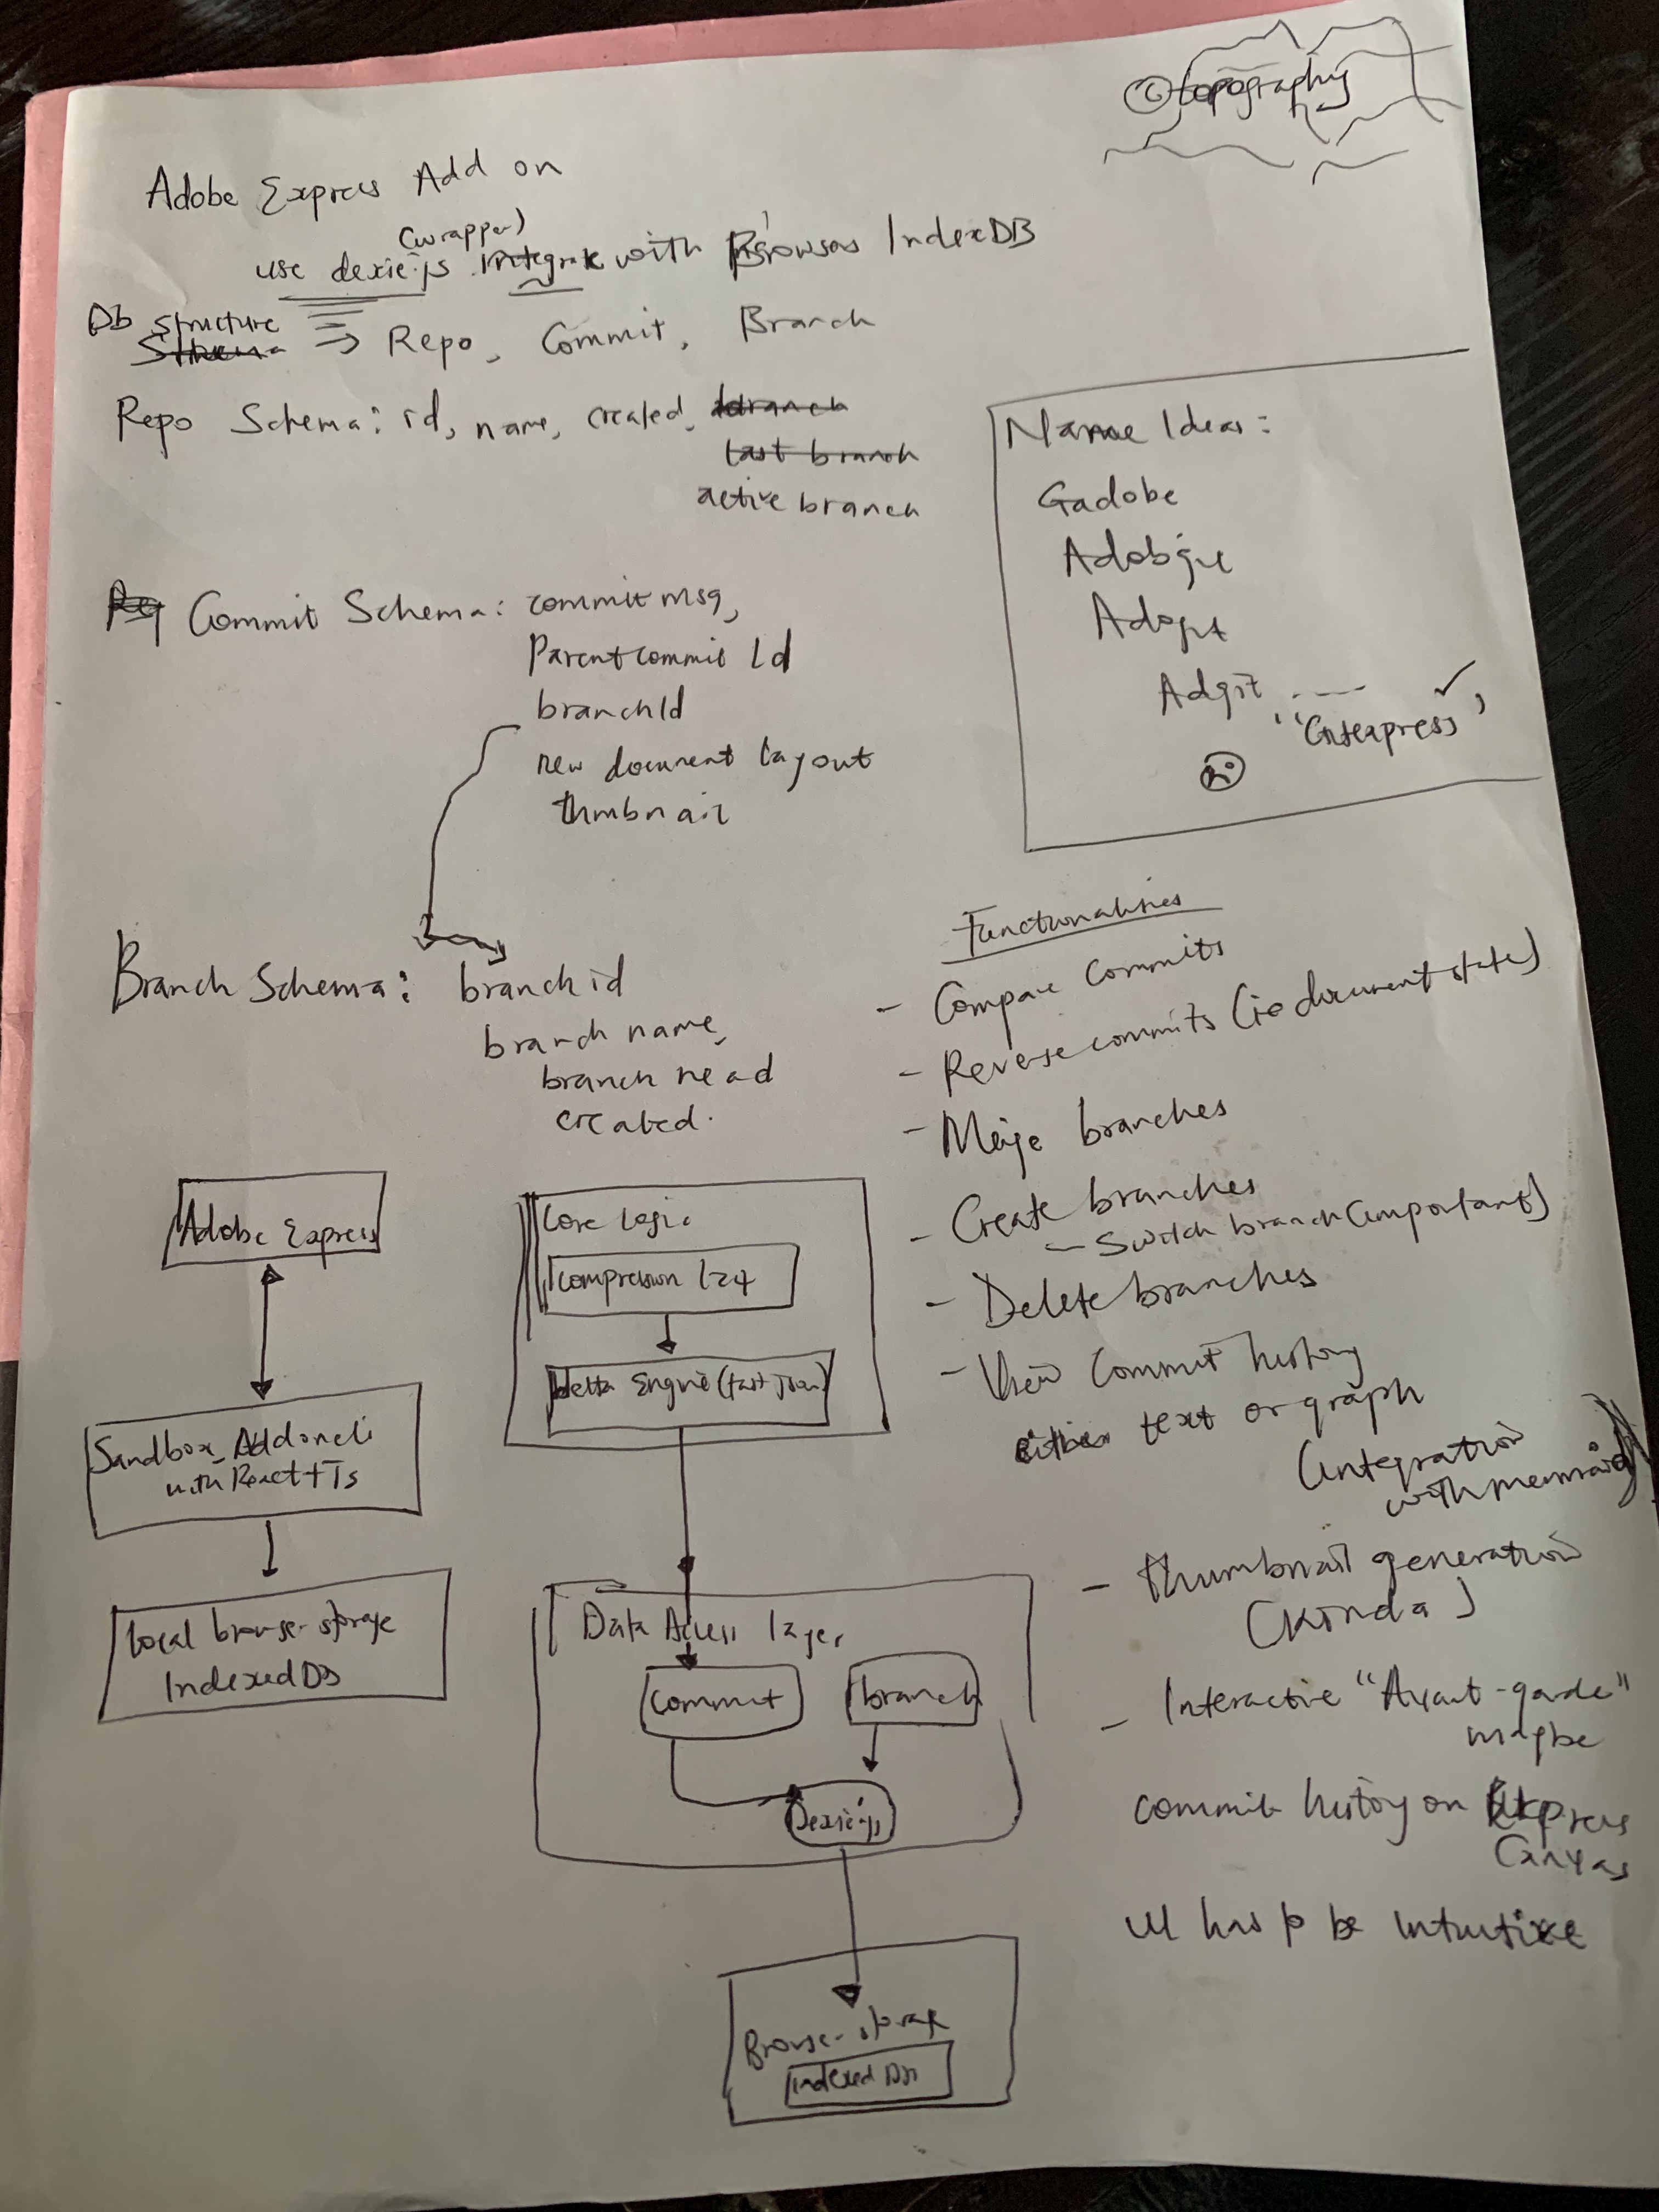 © topography
Adobe Express Add on
(wrapper)
use dexie.js integrate with Browser IndexDB
Db structure
Schema => Repo, Commit, Branch
Repo Schema: id, name, created, branch
last branch
active branch
Name Ideas:
Gadobe
Adobgit
Adogit
Adgit ---- ✓
"Gitexpress"
Commit Schema: commit msg,
Parentcommit Id
branchId
new document layout
thmbnail
Branch Schema: branch id
branch name,
branch head
created.
Functionalities
- Compare commits
- Reverse commits (ie document state)
- Merge branches
- Create branches
- Switch branch (important)
- Delete branches
- View Commit history
either text or graph
(integration
with mermaid)
- thumbnail generation
(kinda)
- Interactive "Avant-garde"
maybe
commit history on Express
Canvas
UI has to be intuitive
Adobe Express
Sandbox Addoncli
with React + Ts
local browser storage
IndexedDB
Core Logic
compression lz4
Delta Engine (fast json)
Data Access layer
Commit
branch
Dexie.js
Browser storage
Indexed DB